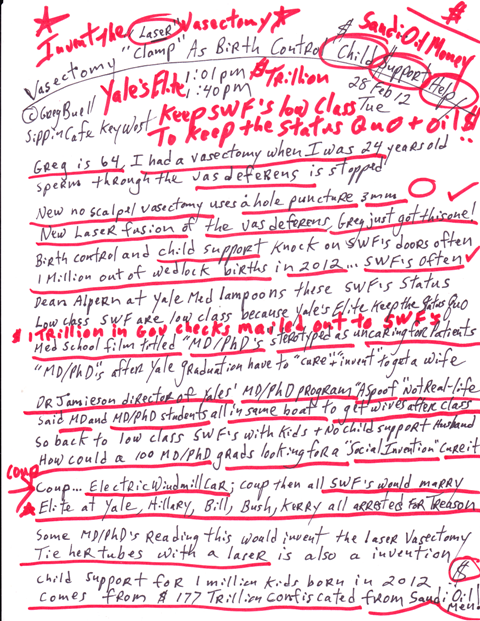 ★ Invent the Laser Vasectomy ★
$ Saudi Oil Money $
Vasectomy "Clamp" As Birth Control "Child Support Help"
Yale's Elite 1:01pm $ Trillion
1:40pm
28 Feb 12
Tue
© Greg Buell
Sippin Cafe Key West
Keep SWF's low Class
To Keep the Status Quo + Oil $
Greg is 64, I had a vasectomy when I was 24 years old
sperm through the vas deferens is stopped
New no scalpel vasectomy uses a hole puncture 3mm O ✓
New Laser fusion of the vas deferens, Greg just got this one!
Birth control and child support knock on SWF's doors often
1 Million out of wedlock births in 2012... SWF's often ✓
Dean Alpern at Yale Med lampoons these SWF's status
Low class SWF are low class because Yale's Elite Keep the Status Quo
$1 Trillion in Gov checks mailed out to SWF's
Med School film titled "MD/PhD's sterotyped as uncaring for Patients
"MD/PhD's after Yale graduation have to "cure"+"invent" to get a wife
DR Jamieson director of Yales' MD/PhD program "A Spoof Not Real-life
Said MD and MD/PhD students all in same boat to get wives after class
So back to low class SWF's with Kids + No child support Husband
How could a 100 MD/PhD grads looking for a "Social Invention" Cure it
coup
Coup... Electric Windmill Car; coup then all SWF's would marry
★ Elite at Yale, Hillary, Bill, Bush, Kerry all arrested for Treason
Some MD/PhD's Reading this would invent the Laser Vasectomy
Tie her tubes with a laser is also a invention
$
Child Support for 1 million Kids born in 2012
comes from $177 Trillion Confiscated from Saudi Oil
Men